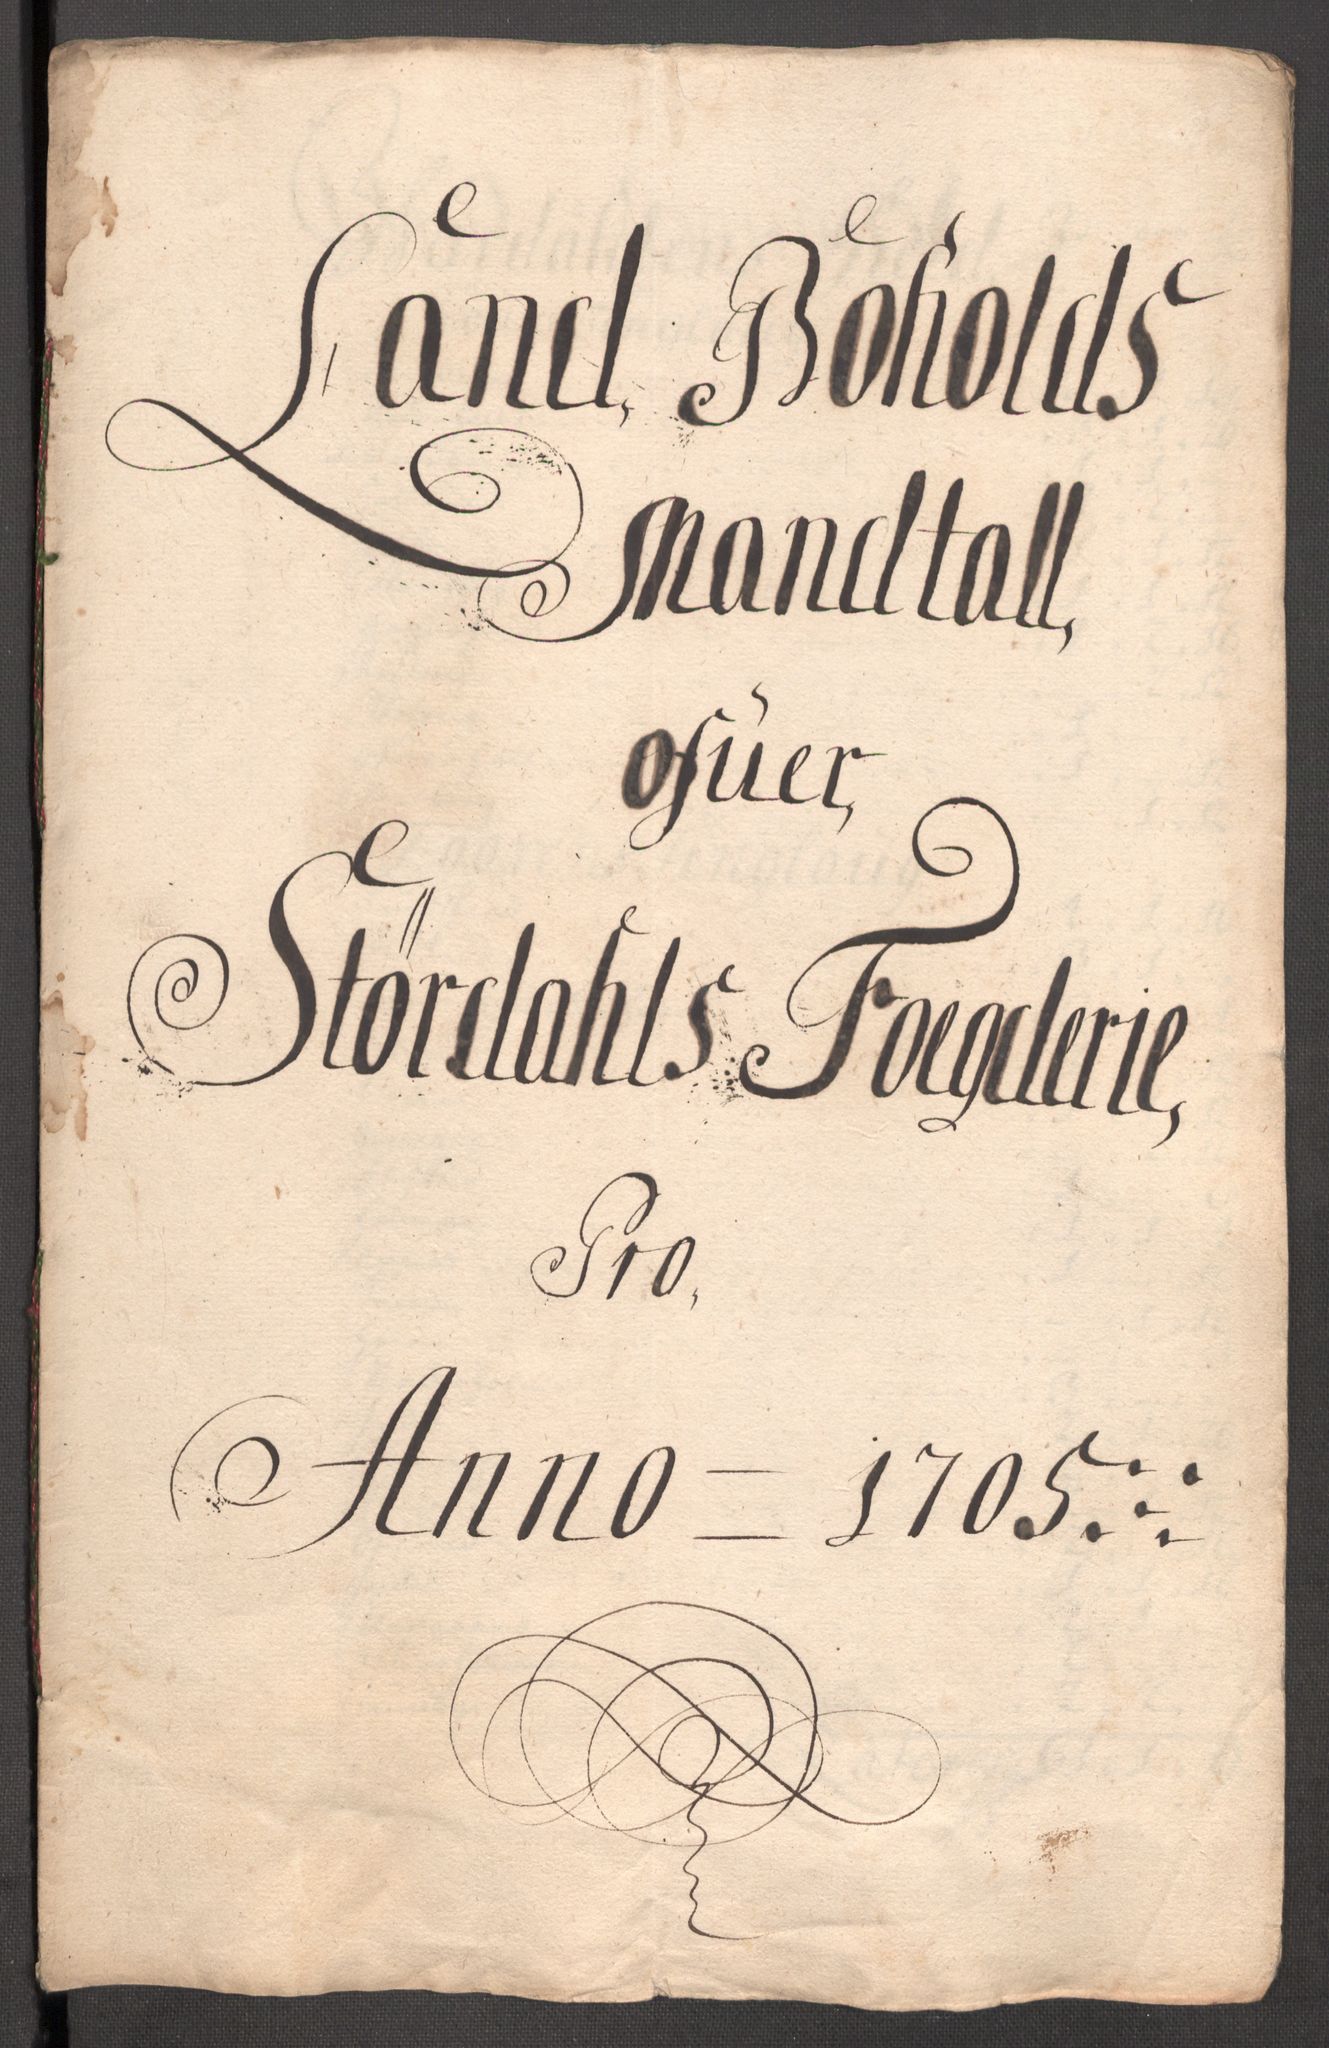 Land, Boholds
Mandtall,
ofuer,
Stördahls Foegderie,
Pro,
Anno = 1705